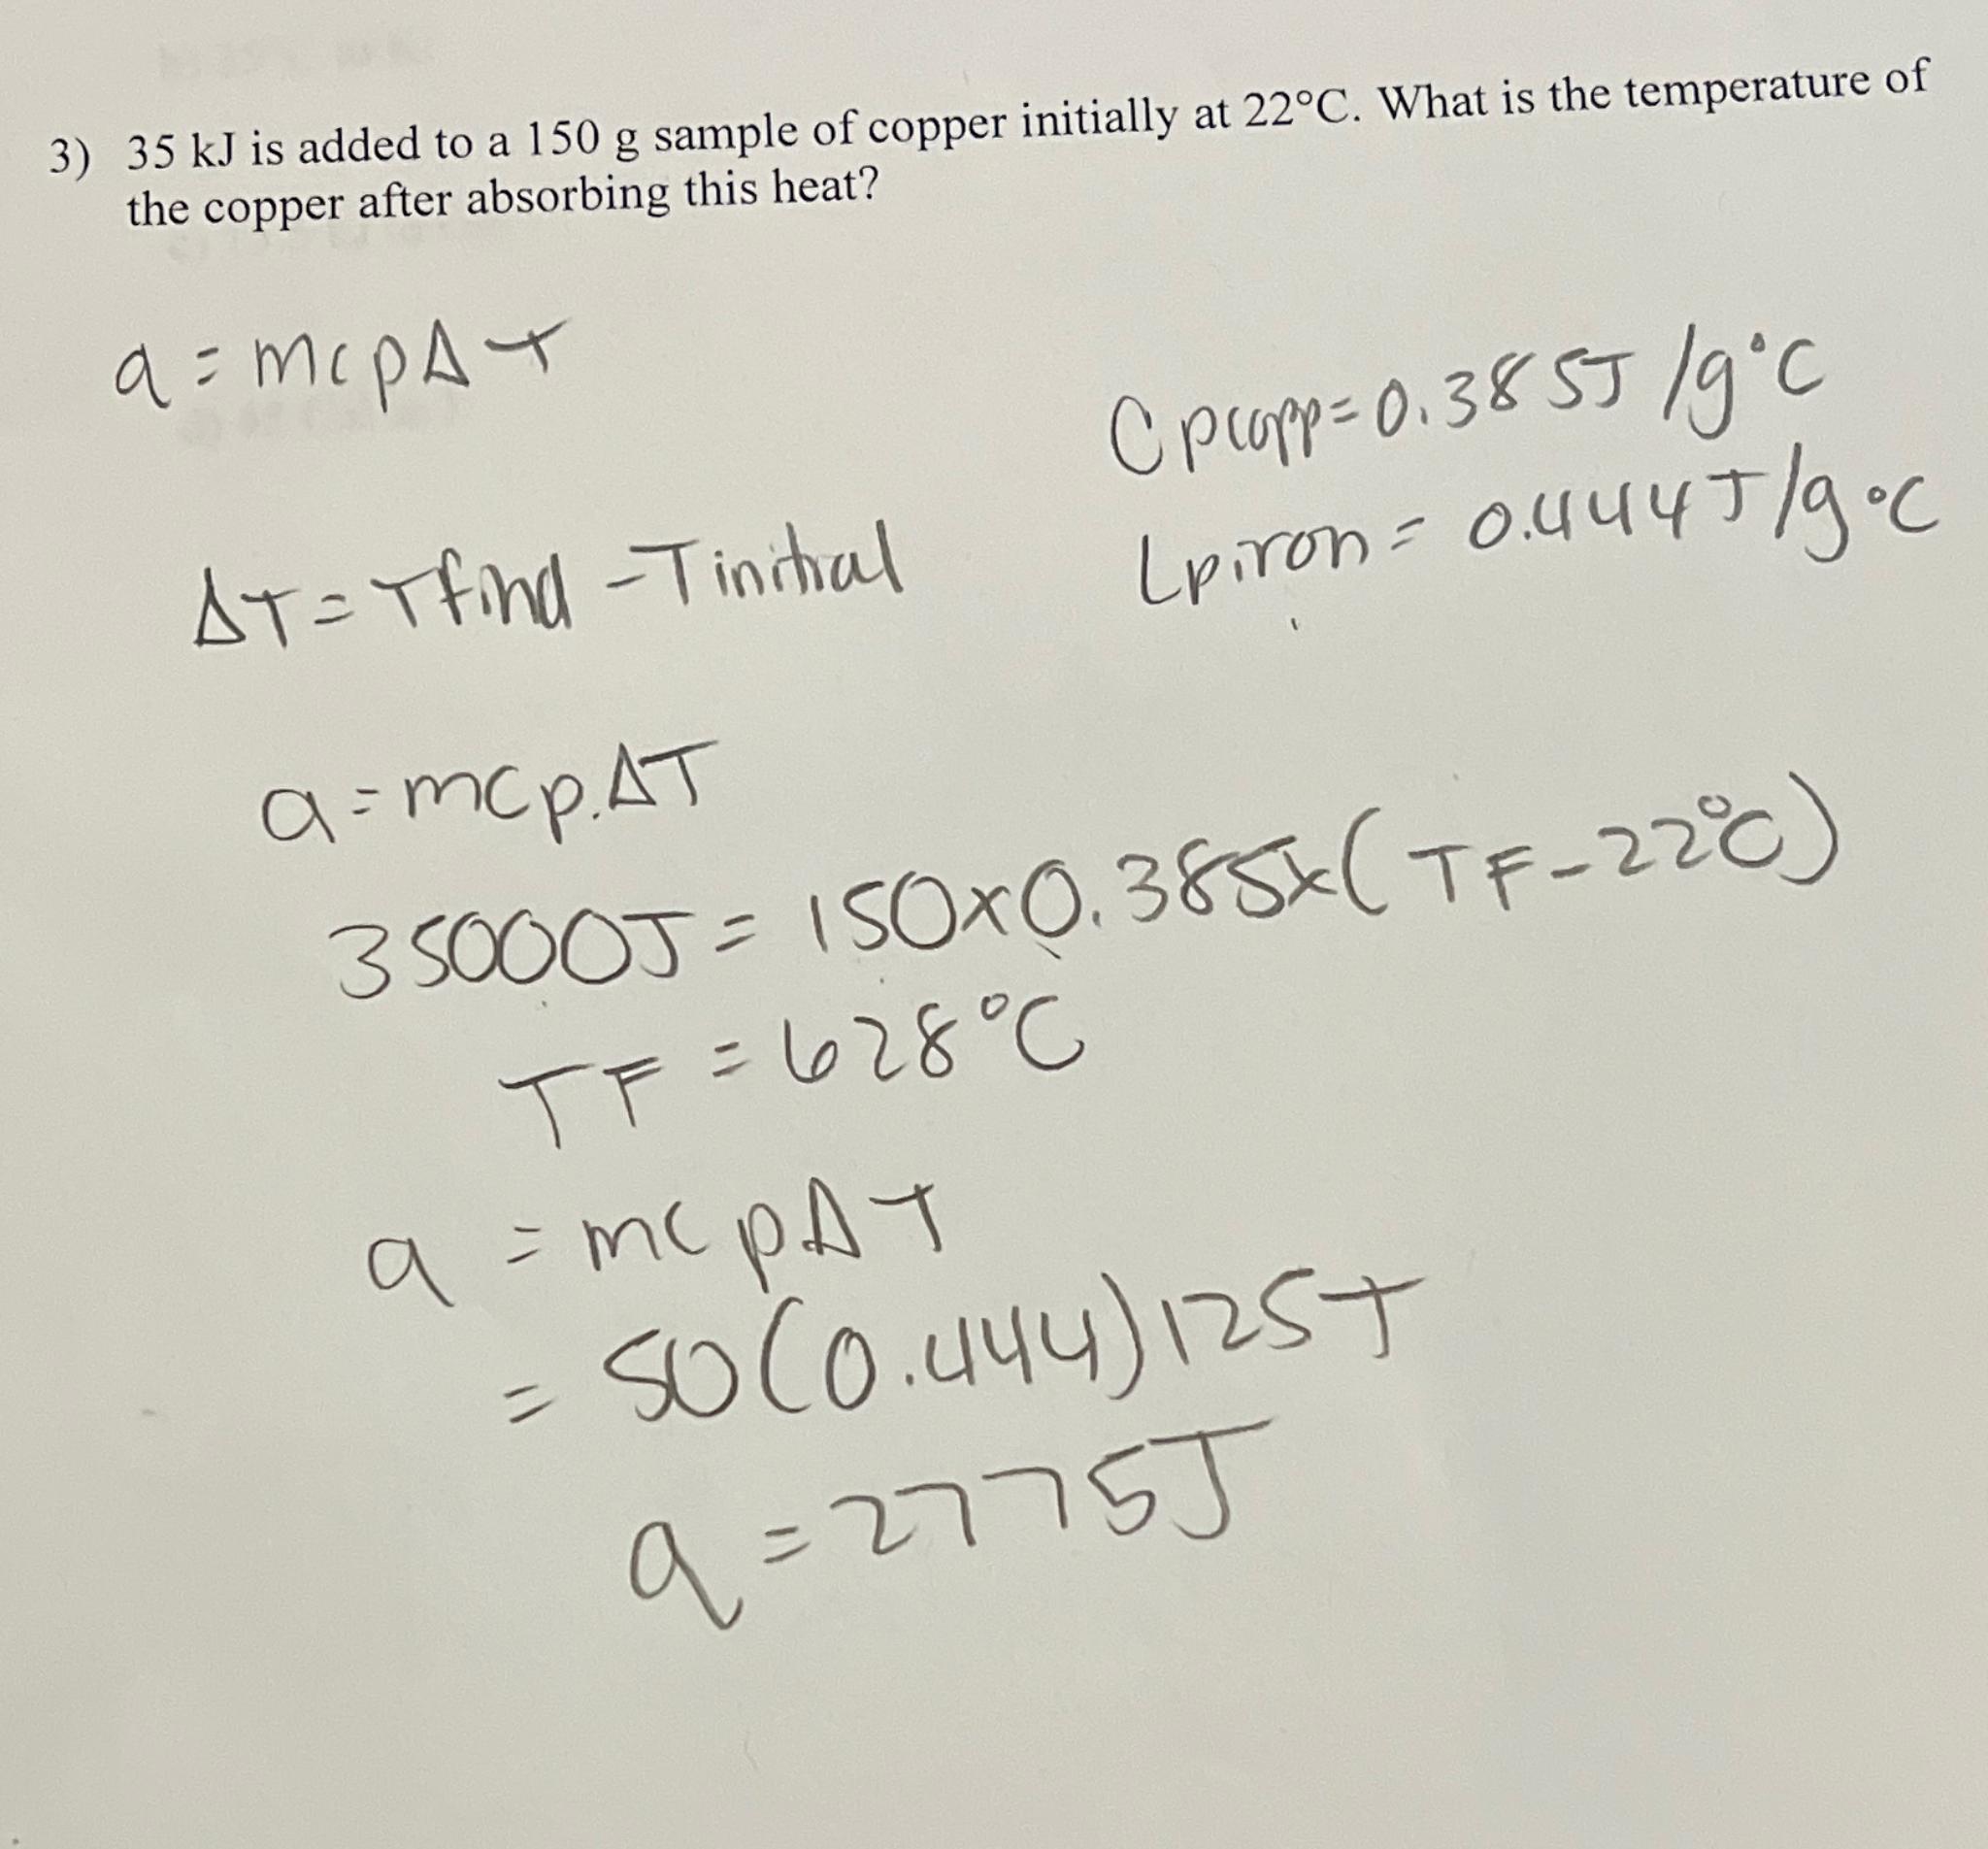 3) 35 kJ is added to a 150 g sample of copper initially at 22°C. What is the temperature of
the copper after absorbing this heat?
q = mcpΔT
Cpcopp = 0.385J/g°C
Cpiron = 0.444J/g°C
ΔT = Tfinal - Tinitial
q = mcp.ΔT
35000J = 150x0.385x(TF-22°C)
TF = 628°C
q = mcpΔT
= 50(0.444)125T
q = 2775J